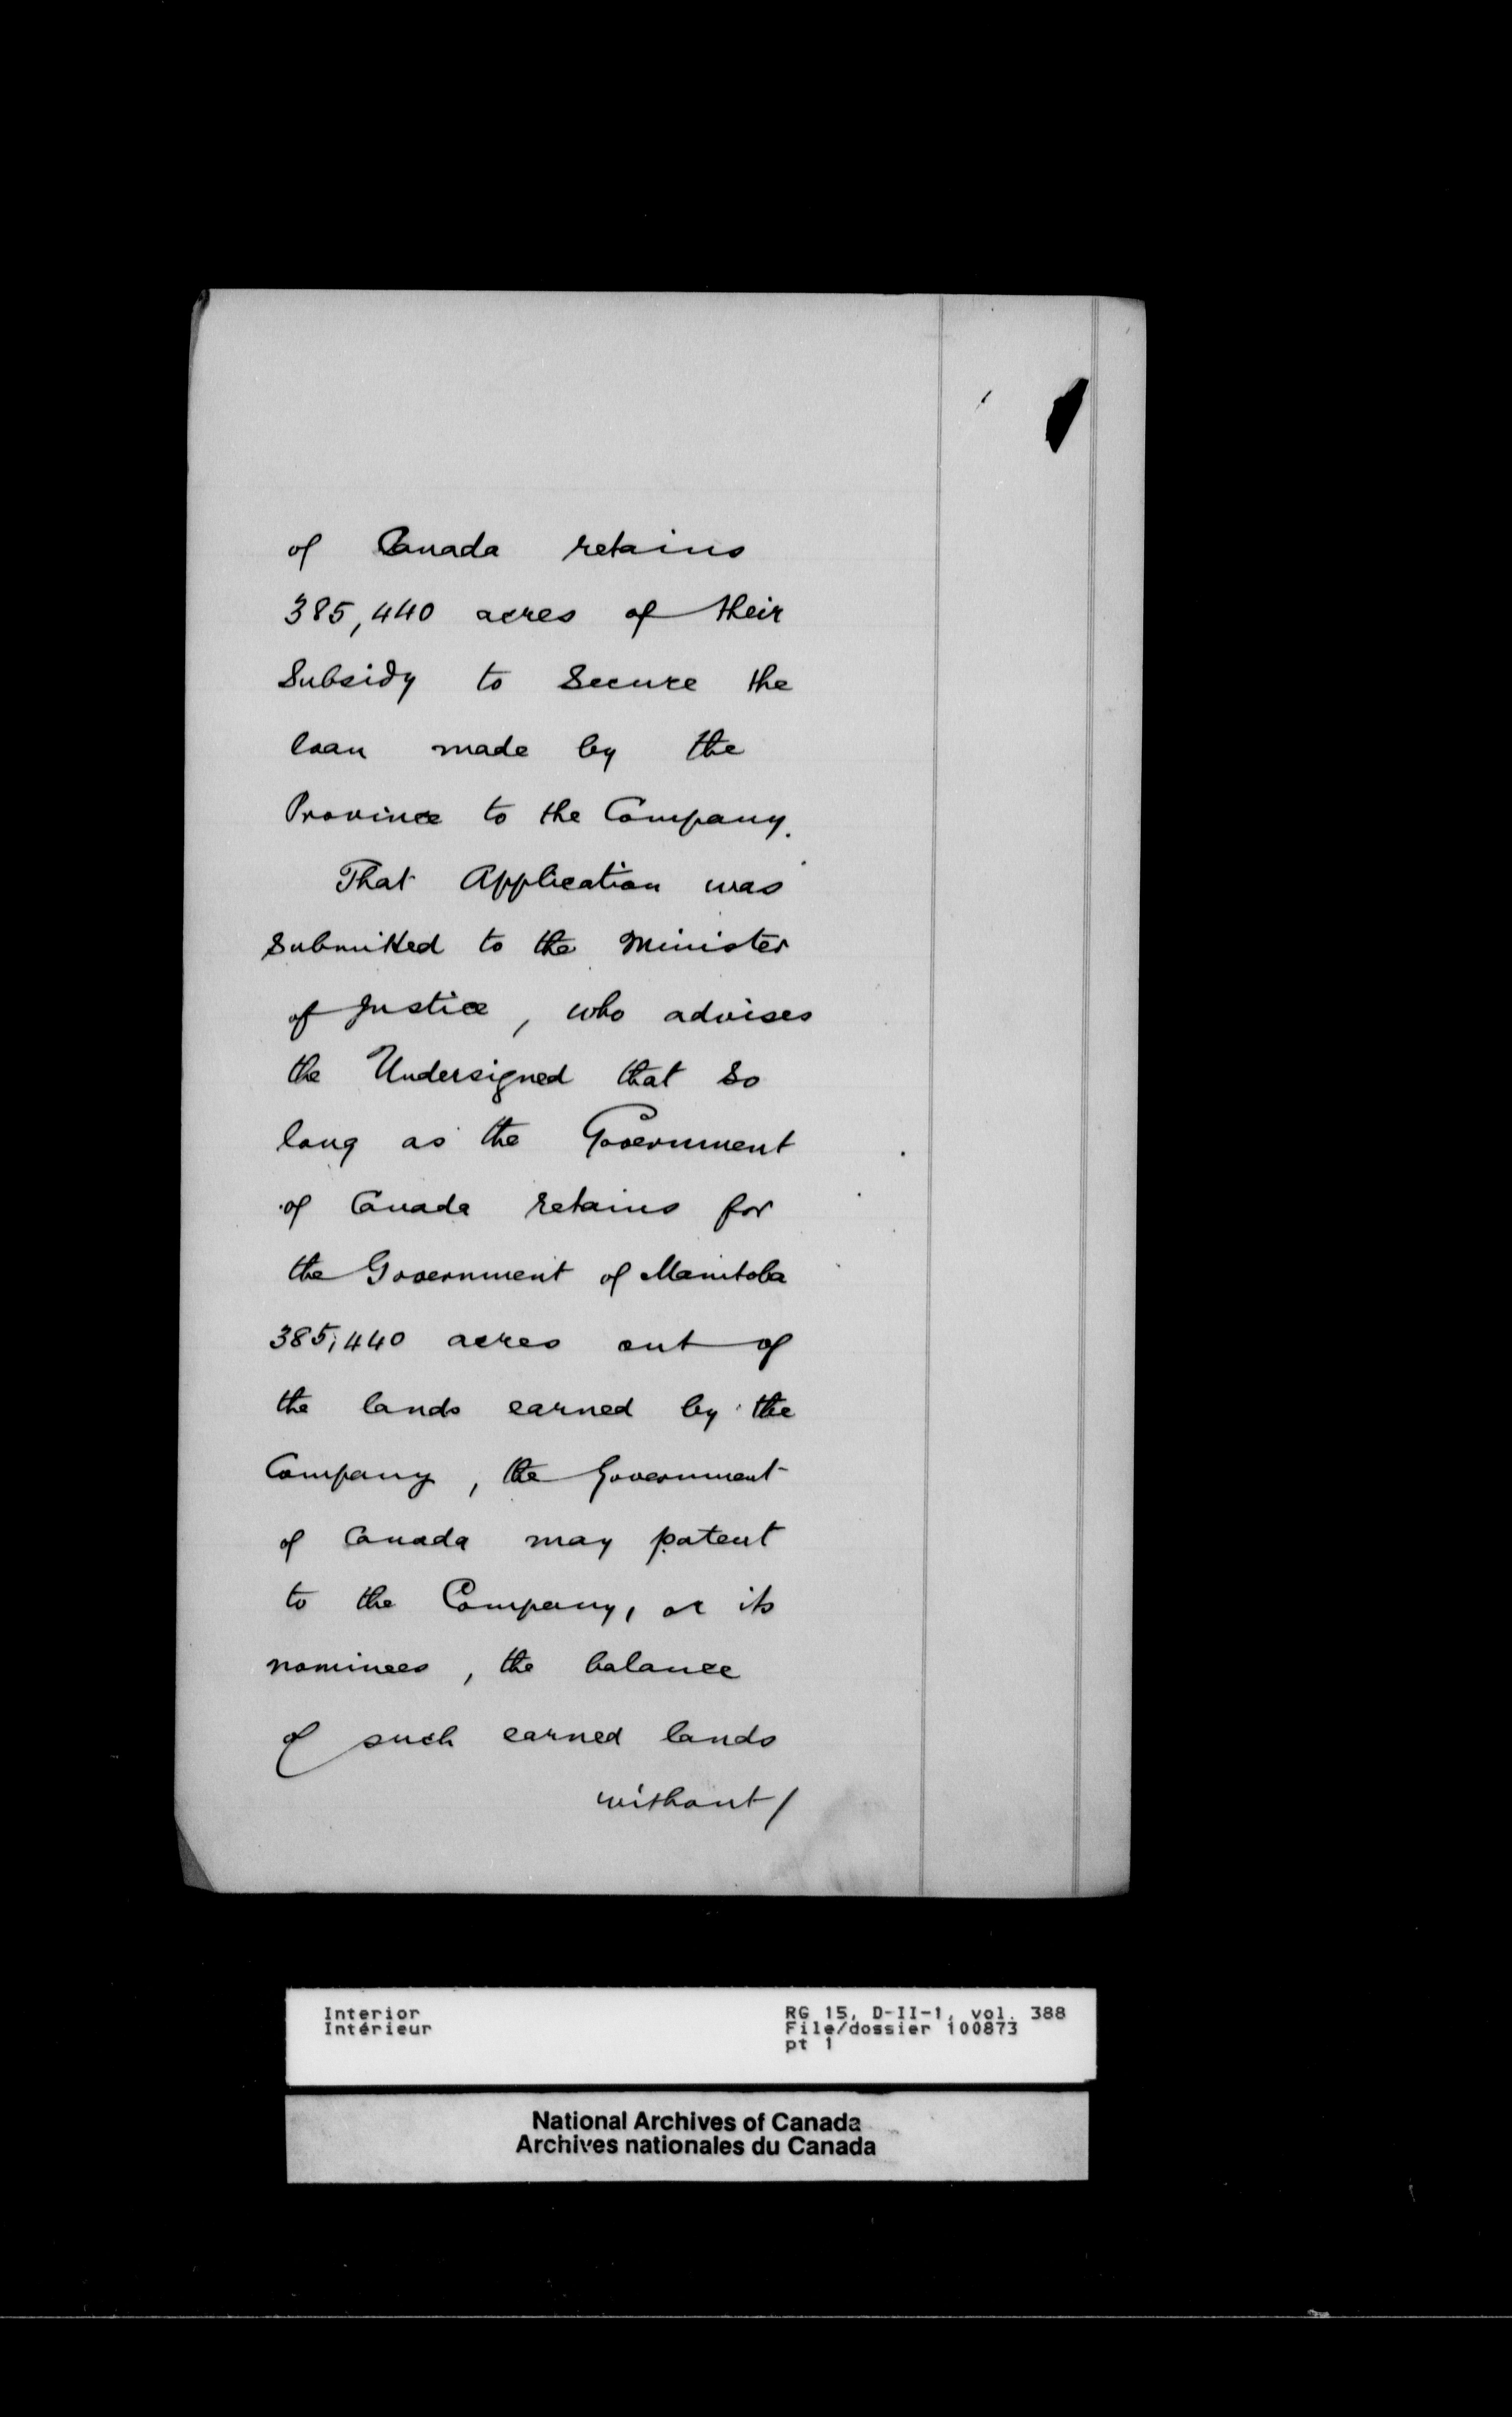 of Canada retains
385,440 acres of their
Subsidy to Secure the
loan made by the
Province to the Company.
That Application was
submitted to the Minister
of Justice, who advises
the Undersigned that so
long as the Government
of Canada retains for
the Government of Manitoba
385,440 acres out of
the lands earned by the
Company, the Government
of Canada may patent
to the Company, or its
nominees, the balance
of such earned lands
without/
Interior
Intérieur
RG 15, D-II-1, vol. 388
File/dossier 100873
pt 1
National Archives of Canada
Archives nationales du Canada